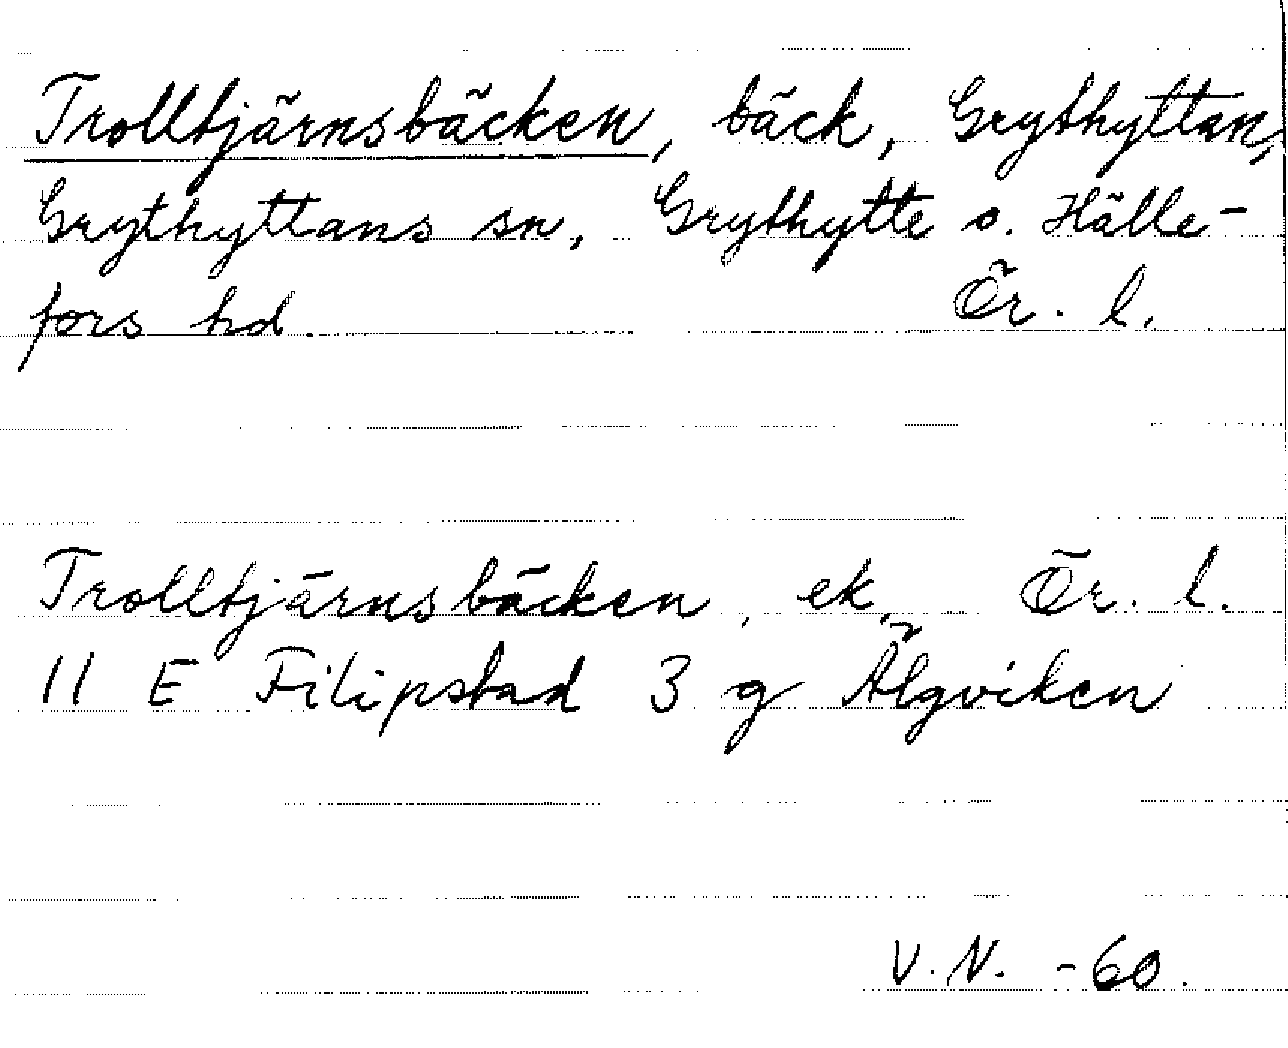 Trolltjärnsbäcken, bäck, Grythyttan,
Grythyttans sn, Grythytte o. Hälle-
fors hd. Ör. l.
Trolltjärnsbäcken, ek, Ör. l.
11 E Filipstad 3 g Älgviken
V.N. -60.